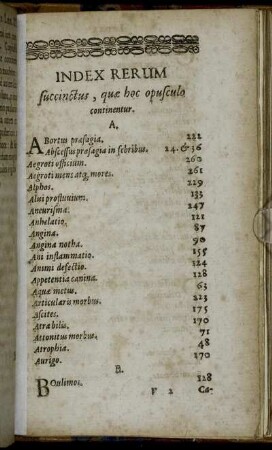 INDEX RERUM
succinctus, quæ hoc opusculo
continentur.
A.
ABortus præsagia. 222
Abscessus præsagia in febribus. 24. & 36
Aegroti officium. 260
Aegroti mens atq; mores. 261
Alphos. 229
Alui profluuium. 133
Aneurisma. 247
Anhelatio. 121
Angina. 87
Angina notha. 90
Ani inflammatio. 155
Animi defectio. 124
Appetentia canina. 128
Aquæ metus. 63
Articularis morbus. 223
Ascites. 175
Atra bilis. 170
Attonitus morbus. 71
Atrophia. 48
Aurigo. 170
B.
BOulimos. 128
V 2 Ca-